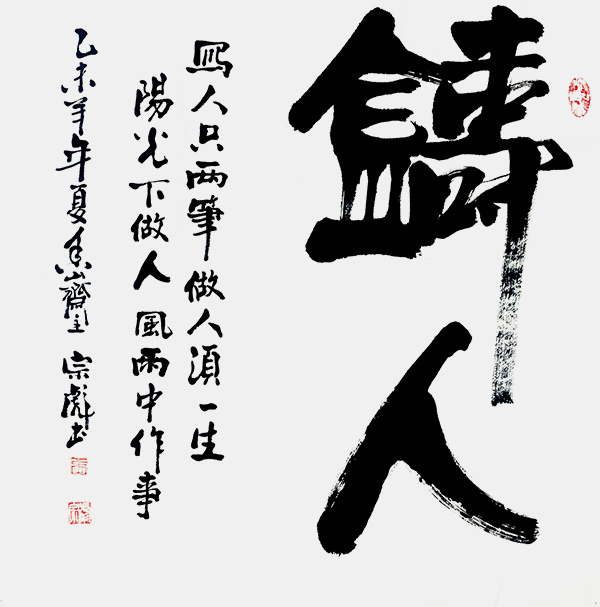 鑄人
寫人只兩筆做人須一生
陽光下做人風雨中作事
乙未羊年夏香山齋主宗彪书